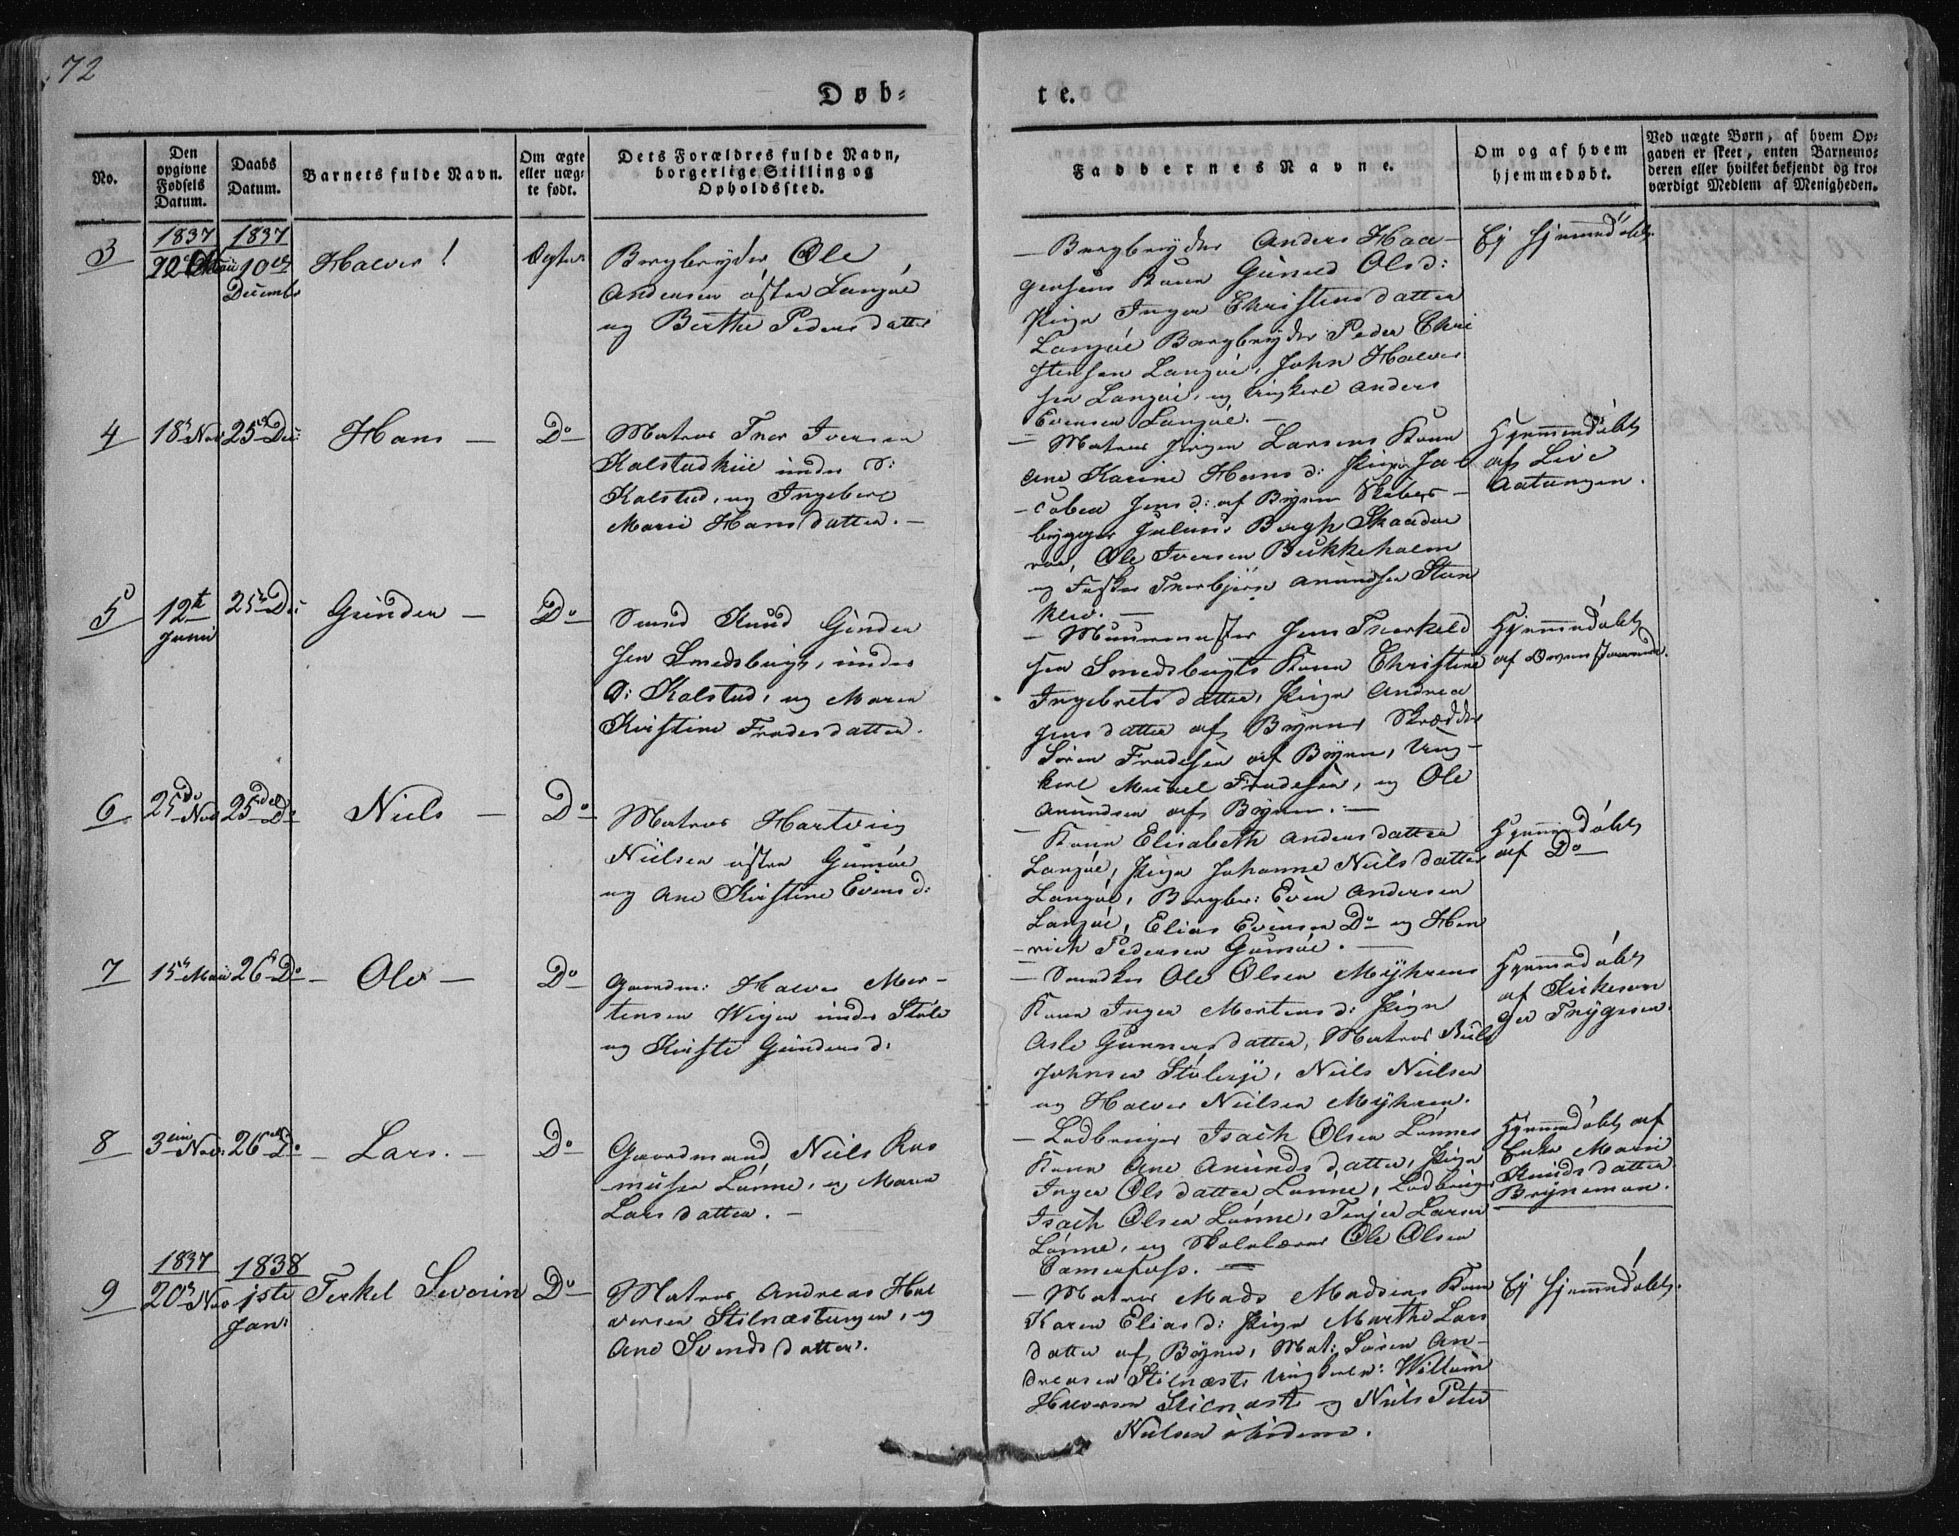 72
Døb-
te.
No.
Den opgivne Fødsels Datum.
Daabs Datum.
Barnets fulde Navn.
Om ægte eller uægte født.
Dets Forældres fulde Navn,
borgerlige Stilling og
Opholdssted.
Faddernes Navne.
Om og af hvem
hjemmedøbt.
Ved uægte Børn, af hvem Op-
gaven er skeet, enten Barnemo-
deren eller hvilket bekjendt og tro-
værdigt Medlem af Menigheden.
3
1837
1837
10de
Decembr
Halver!
Ægte
Bergbryder Ole
Andersen østre Langøe
og Berthe Pedersdatter
Bergbryder Anders Haa-
gensens Kone Gunild Olsd:
Pige Inger Christensdatter
Langøe Bergbryder Peder Chri
stensen Langøe, John Halver
sen Langøe, og Ungkarl Anders
Evensen Langøe. -
Ej hjemmedøbt
4
18de Nov
25de De
Hans -
Do
Matros Thor Iversen
Kalstadkiil under
Kalstad, og Ingeborg
Marie Hansdatter. -
- Matros Jørgen Larsens Kone
Ane Karine Hansd: Pige Ja-
cobea Jensd: af Byen Skibs-
bygger Julius Bergh Skaadee
, Ole Iversen Bukkeholm
og Fisker Thorbjørn Amundsen Sten
kløv. -
Hjemmedøbt
af Live
Aatangen.
5
12te Junii
25de De
Gunder -
Do
Smed Knud Gunder
sen Smedsbugt, under
Kalstad, og Maren
Kirstine Fredesdatter.
- Muurmester Jens Thorkeld
sen Smedsbugts Kone Christine
Ingebretsdatter, Pige Andrea
Jensdatter af Byen, Skrædder
Søren Fredesen af Byen, Ung-
karl Mikel Fredesen, og Ole
Amundsen af Byen. -
Hjemmedøbt
af
6
25de Nov
25de Do
Niels -
Do
Matros Hartvig
Nielsen østre Gumøe
og Ane Kirstine Evensd:
- Kone Elisabeth Andersdatter
Langøe, Pige Johanne Nielsdatter
Langøe, Bergbr: Even Andersen
Langøe, Elias Evensen Do og Hen
-rich Pedersen Gumøe. -
Hjemmedøbt
af Do
7
15de Maii
26de Do
- Ole -
Do
Gaardm: Halvor Mor-
tensen Weijen under Støle
og Kirsti Gundersd:
- Snedker Ole Olsen Myhrens
Kone Inger Mortensd: Pige
Asle Gunnersdatter, Matros Niels
Johnsen Stølerje, Niels Nielsen
og Halvor Nielsen Myhren.
Hjemmedøbt
af Kirkesan
ger Thygesen.
8
3die Nov
26de Do
- Lars. -
Do
Gaardmand Niels Ras
-musen Lønne, og Maren
Larsdatter. -
- Ladbruger Isach Olsen Lønnes
Kone Ane Amundsdatter, Pige
Inger Olsdatter Lønne, Ladbruger
Isach Olsen Lønne, Terjer Larsen
Lønne, og Skolelærer Ole Olsen
Camerfoss. -
Hjemmedøbt af
Enke Maren
Knudsdatter
Brynemoen.
9
1837
20de Nov
1838
1ste
Jan:
Terkel Severin
Do
Matros Andreas Hal
versen Stilnæstangen, og
Ane Svendsdatter.
- Matros Mads Madsens Kone
Karen Eliasd: Pige Marthe Lars
datter af Byen, Mat: Søren An-
dreasen Stilnæst Ungkarle: Willum
Halversen Stilnæst og Niels Peter
Nielsen ibidem.
Ej hjemmedøbt.